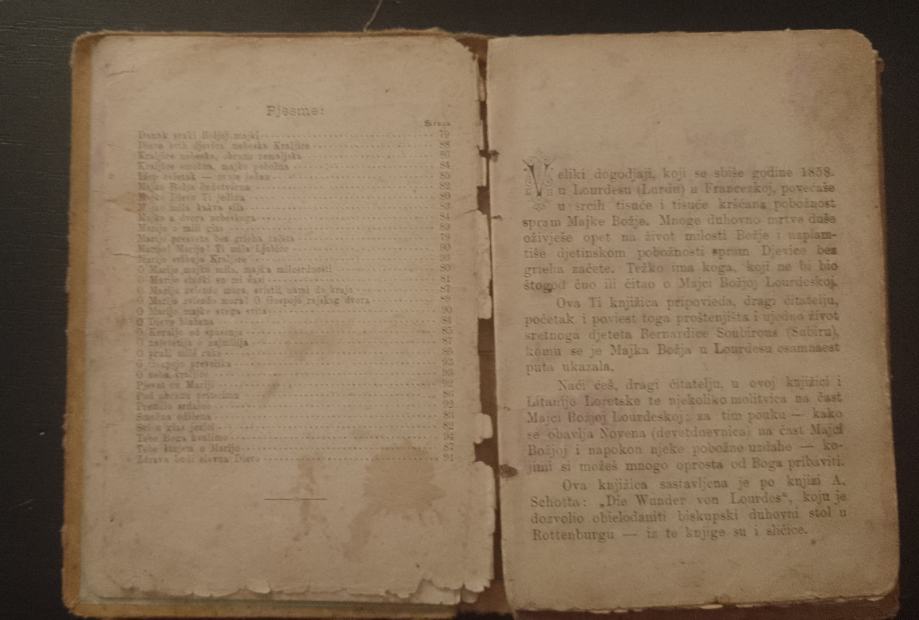 Pjesme:
Strana
Danak svaki Božjoj majki 79
Djevo svih djevica, nebeska Kraljice 88
Kraljice nebeska, obrano zemaljska 80
Kraljice smožna, majko pobožna 84
Majko Božja 82
Majko Djevo Ti jedina 89
Majko mila kakva sila
Majko s dvora nebeskoga 84
Marijo o mili glas 89
Marijo presveta bez grieha začeta 79
Marijo! Marijo! Ti mila Ljubice 90
Marijo svibnja Kraljice
O Marijo, majko mila, majka milosrdnosti 80
O Marijo slatki su mi dasi 81
O Marijo zviezdo mora, svietli nami do kraja 87
O Marijo zviezdo mora! O Gospojo rajskog dvora
O Marijo majko svega svita 90
O Djevo blažena 84
87
O prati mila ruko 86
O Gospojo prevelika
O neba kraljice 93
Pjevat ću Mariji 92
Pod obranu pritečimo 86
Premilo srdašce 92
Smožna odičena 83
Svi u glas jezici 82
Tebe Boga hvalimo 94
Tebe štujem o Marijo 87
Zdravo budi slavna Djevo 91
Veliki dogodjaji, koji se sbiše godine 1858.
u Lourdesu (Lurdu) u Francezkoj, povećaše
u srcih tisuće i tisuće kršćana pobožnost
spram Majke Božje. Mnoge duhovno mrtve duše
oživješe opet na život milosti Božje i usplam-
tiše djetinskom pobožnosti spram Djevice bez
grieha začete. Težko ima koga, koji ne bi bio
štogod čuo ili čitao o Majci Božjoj Lourdeskoj.
Ova Ti knjižica pripovieda, dragi čitatelju,
početak i poviest toga proštenjišta i ujedno život
sretnoga djeteta Bernardice Soubirous (Subiru),
komu se je Majka Božja u Lourdesu osamnaest
puta ukazala.
Naći ćeš, dragi čitatelju, u ovoj knjižici i
Litanije Loretske te njekoliko molitvica na čast
Majci Božjoj Lourdeskoj; za tim pouku — kako
se obavlja Novena (devetdnevnica) na čast Majci
Božjoj i napokon njeke pobožne uzdahe — ko-
jimi si možeš mnogo oprosta od Boga pribaviti.
Ova knjižica sastavljena je po knjizi A.
Schotta: „Die Wunder von Lourdes“, koju je
dozvolio obielodaniti biskupski duhovni stol u
Rottenburgu — iz te knjige su i sličice.